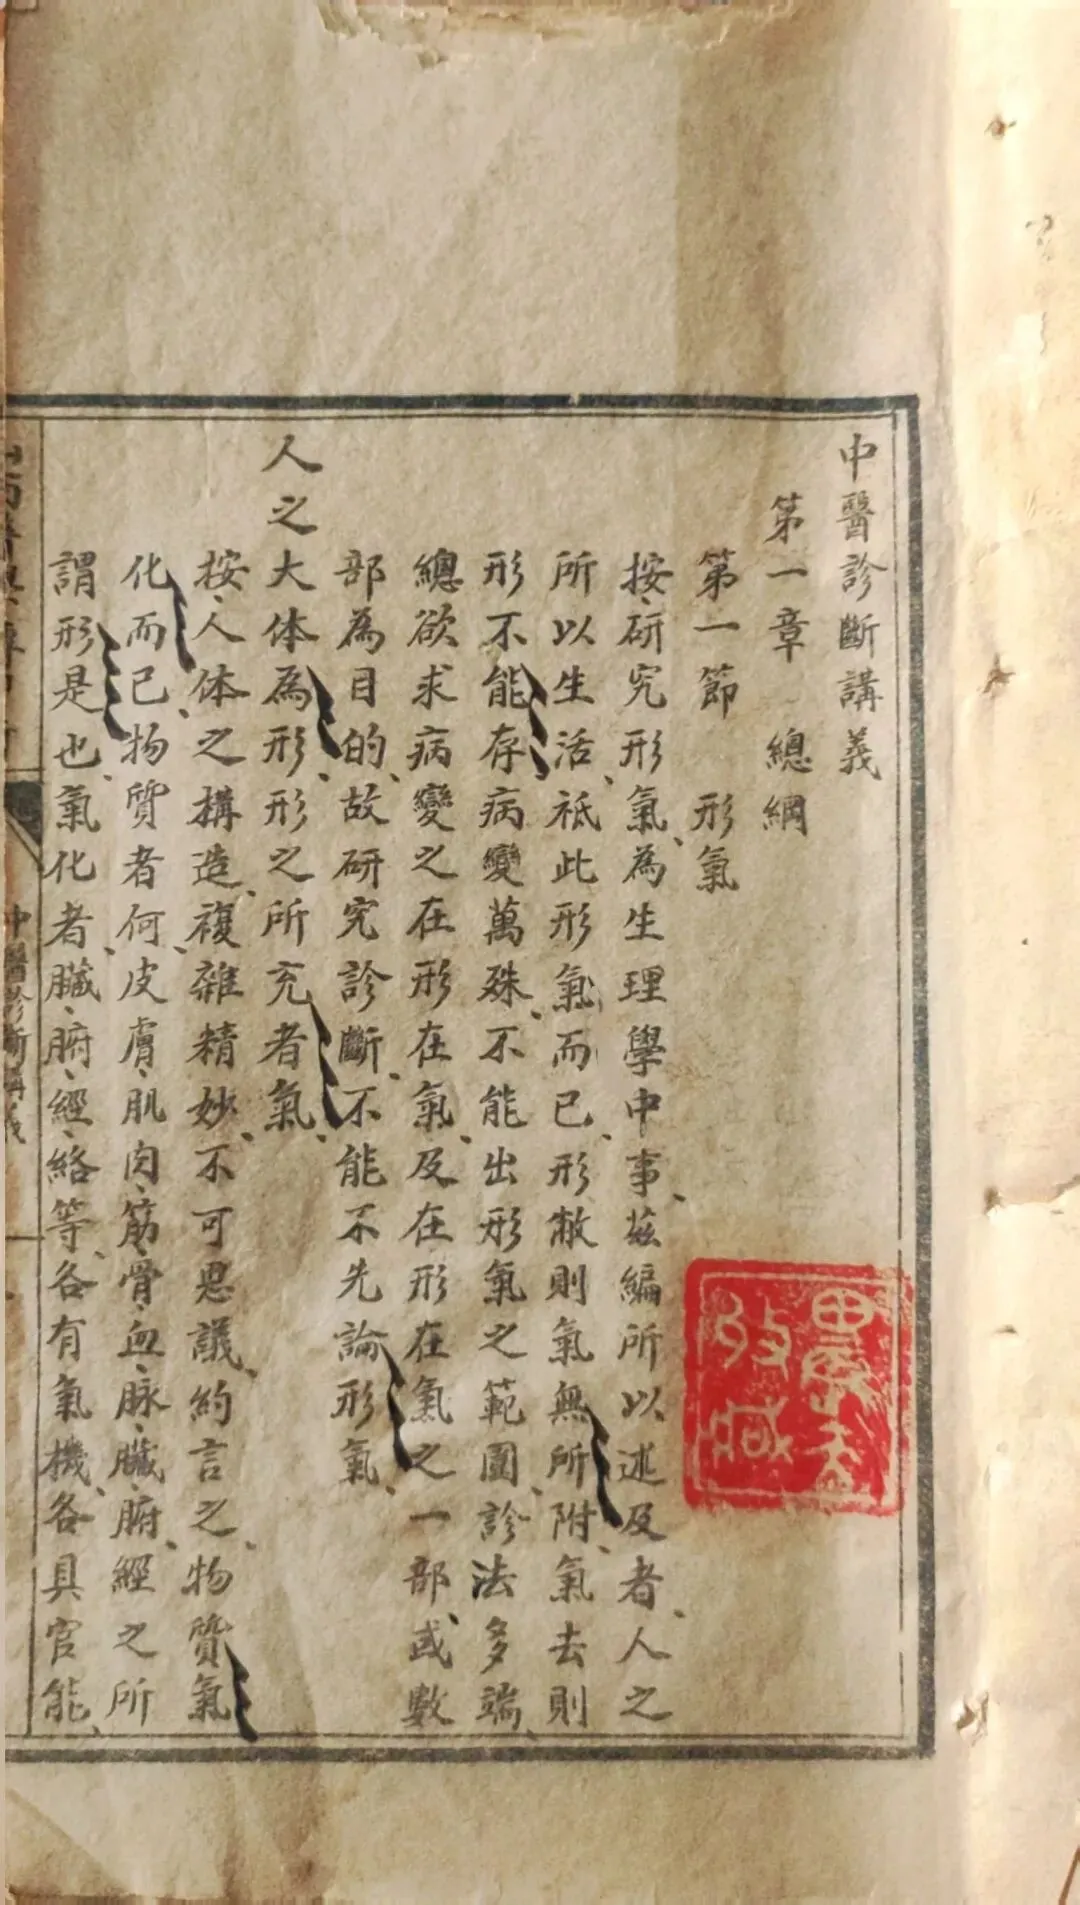 中醫診斷講義
第一章 總綱
第一節 形氣
按、研究形氣、為生理學中事、茲編所以述及者、人之
所以生活、祗此形氣而已、形敝則氣無所附、氣去則
形不能存、病變萬殊、不能出形氣之範圍、診法多端、
總欲求病變之在形在氣、及在形在氣之一部、或數
部為目的、故研究診斷、不能不先論形氣、
人之大体為形、形之所充者氣、
按、人体之構造、複雜精妙、不可思議、約言之、物質氣
化而已、物質者何、皮膚、肌肉、筋、骨、血、脉、臟、腑、經之所
謂形是也、氣化者、臟、腑、經、絡等、各有氣機、各具官能、
中醫診斷講義